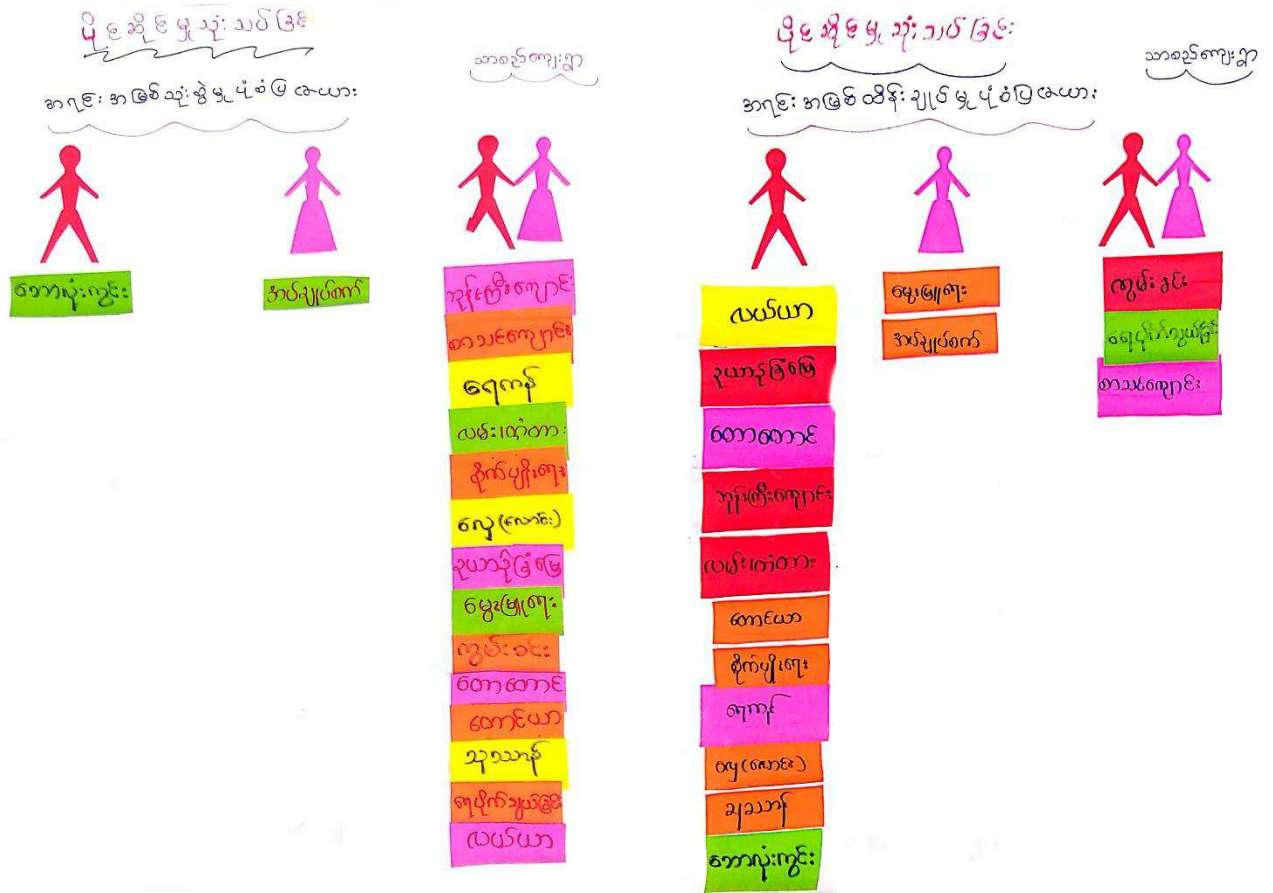 ပိုင်ဆိုင်မှုသုံးသပ်ခြင်း
သာစည်ကျေးရွာ
အရင်းအမြစ်သုံးစွဲမှုပုံစံပြဇယား
ဘောလုံးကွင်း
အပ်ချုပ်စက်
ဘုန်းကြီးကျောင်း
စာသင်ကျောင်း
ရေကန်
လမ်း၊တံတား
စိုက်ပျိုးရေး
လှေ(လောင်း)
ဥယာဉ်ခြံမြေ
မွေးမြူရေး
ကွမ်းခင်း
တောတောင်
တောင်ယာ
သုဿာန်
ရေပိုက်သွယ်ခြင်း
လယ်ယာ
ပိုင်ဆိုင်မှုသုံးသပ်ခြင်း
သာစည်ကျေးရွာ
အရင်းအမြစ်ထိန်းချုပ်မှုပုံစံပြဇယား
လယ်ယာ
ဥယာဉ်ခြံမြေ
တောတောင်
ဘုန်းကြီးကျောင်း
လမ်း၊တံတား
တောင်ယာ
စိုက်ပျိုးရေး
ရေကန်
လှေ(လောင်း)
ဘောလုံးကွင်း
မွေးမြူရေး
အပ်ချုပ်စက်
ကွမ်းခင်း
ရေပိုက်သွယ်ခြင်း
စာသင်ကျောင်း